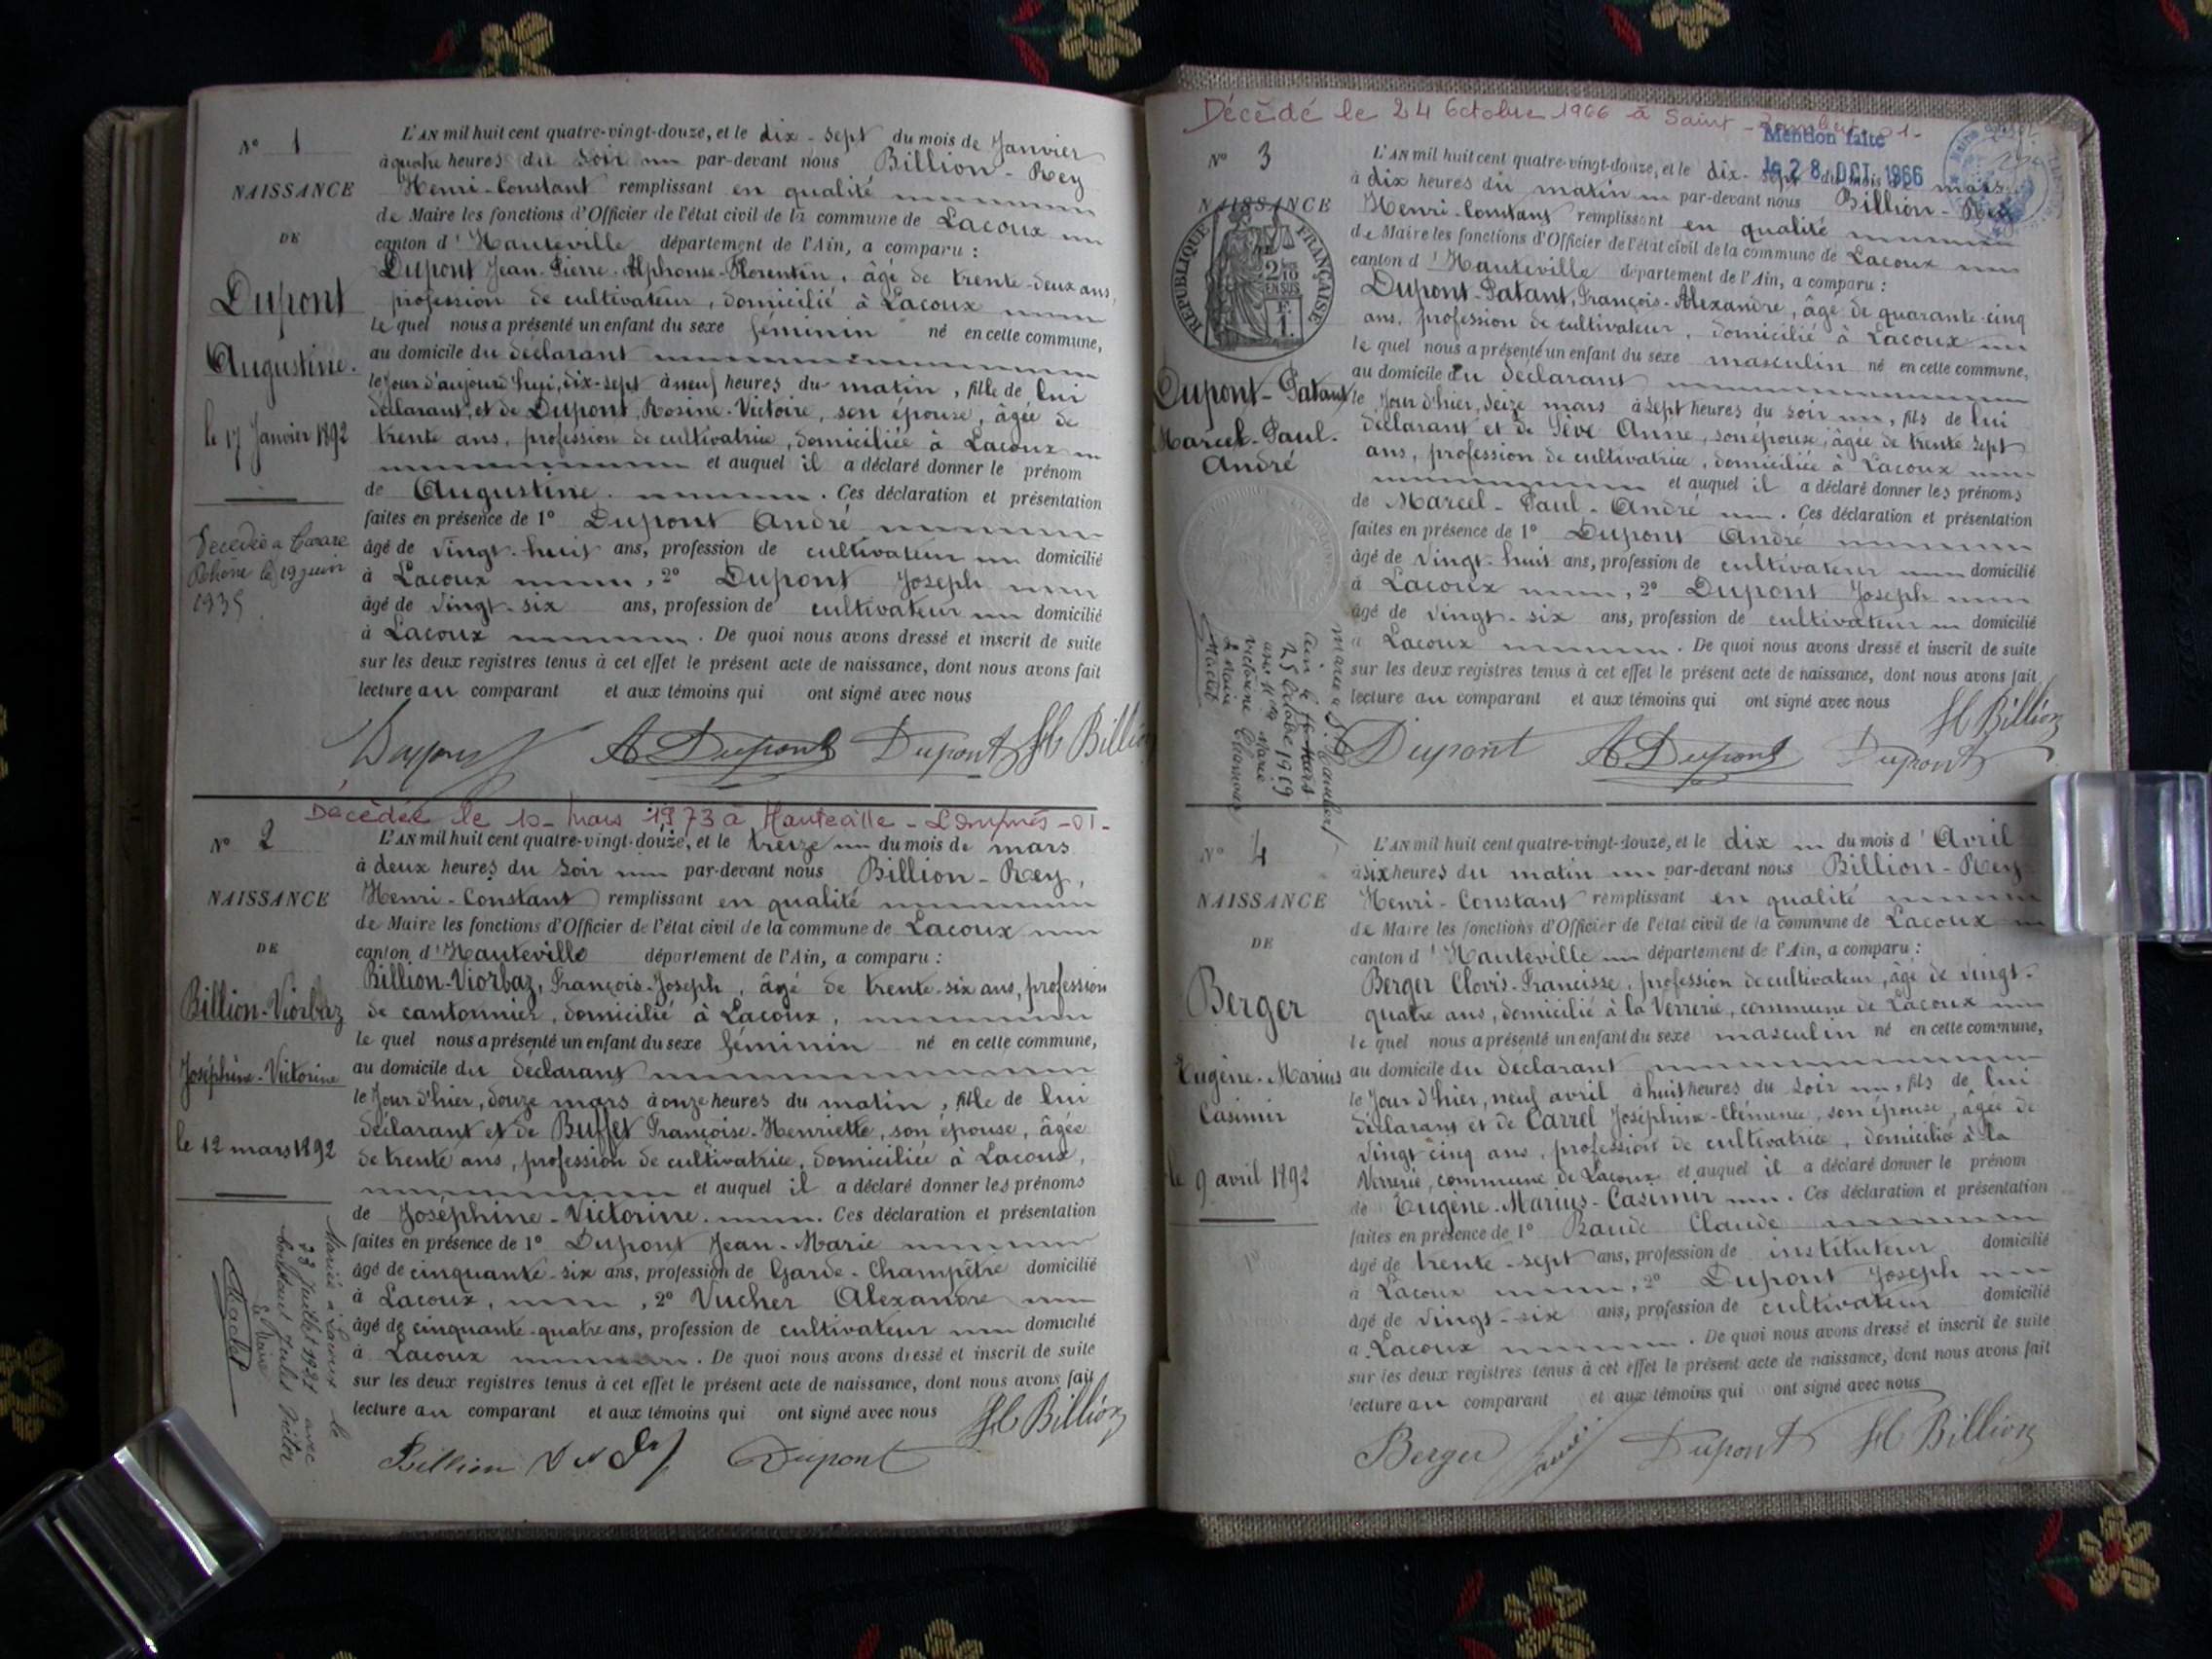 N° 1
NAISSANCE
DE
Dupont
Augustine.
le 17 Janvier 1892
Décédée à Tarare
Rhône le 19 juin
1935
L'AN mil huit cent quatre-vingt-douze, et le dix-sept du mois de Janvier
à quatre heures du soir par-devant nous Billion-Rey
Henri-Constant remplissant en qualité
de Maire les fonctions d'Officier de l'état civil de la commune de Lacoux
canton d'Hauteville département de l'Ain, a comparu :
Dupont Jean-Pierre-Alphonse-Florentin, âgé de trente-deux ans,
profession de cultivateur, domicilié à Lacoux
le quel nous a présenté un enfant du sexe féminin né en cette commune,
au domicile du déclarant
le jour d'aujourd'hui, dix-sept à neuf heures du matin, fille de lui
déclarant, et de Dupont, Rosine-Victoire, son épouse, âgée de
trente ans, profession de cultivatrice, domiciliée à Lacoux
et auquel il a déclaré donner le prénom
de Augustine. Ces déclaration et présentation
faites en présence de 1° Dupont André
âgé de vingt-huit ans, profession de cultivateur domicilié
à Lacoux, 2° Dupont Joseph
âgé de vingt-six ans, profession de cultivateur domicilié
à Lacoux. De quoi nous avons dressé et inscrit de suite
sur les deux registres tenus à cet effet le présent acte de naissance, dont nous avons fait
lecture au comparant et aux témoins qui ont signé avec nous
Dupont A Dupont Dupont H C Billion
Décédée le 10 mars 1973 à Hauteville-Lompnes-01-
N° 2
NAISSANCE
DE
Billion-Viorbaz
Joséphine-Victorine
le 12 mars 1892
Mariée à Lacoux le
23 Juillet 1921 avec
Jules Victor
Le Maire
L'AN mil huit cent quatre-vingt-douze, et le treize du mois de mars
à deux heures du soir par-devant nous Billion-Rey,
Henri-Constant remplissant en qualité
de Maire les fonctions d'Officier de l'état civil de la commune de Lacoux
canton d'Hauteville département de l'Ain, a comparu :
Billion-Viorbaz, François-Joseph, âgé de trente-six ans, profession
de cantonnier, domicilié à Lacoux,
le quel nous a présenté un enfant du sexe féminin né en cette commune,
au domicile du déclarant
le jour d'hier, douze mars à onze heures du matin, fille de lui
déclarant et de Buffet Françoise-Henriette, son épouse, âgée
de trente ans, profession de cultivatrice, domiciliée à Lacoux,
et auquel il a déclaré donner les prénoms
de Joséphine-Victorine. Ces déclaration et présentation
faites en présence de 1° Dupont Jean-Marie
âgé de cinquante-six ans, profession de Garde-Champêtre domicilié
à Lacoux, 2° Vucher Alexandre
âgé de cinquante-quatre ans, profession de cultivateur domicilié
à Lacoux. De quoi nous avons dressé et inscrit de suite
sur les deux registres tenus à cet effet le présent acte de naissance, dont nous avons fait
lecture au comparant et aux témoins qui ont signé avec nous
Billion Dupont H C Billion
Décédé le 24 Octobre 1966 à Saint-Rambert-01-
Mention faite
le 28 OCT. 1966
N° 3
NAISSANCE
RÉPUBLIQUE FRANÇAISE
2/10 EN SUS
Dupont-Patant
Marcel-Paul-
André
Marié à St Rambert
Ain le 16 Mars
25 Octobre 1919
avec Marie
Victorine
Le Maire
L'AN mil huit cent quatre-vingt-douze, et le dix-sept du mois de mars
à dix heures du matin par-devant nous Billion-Rey
Henri-Constant remplissant en qualité
de Maire les fonctions d'Officier de l'état civil de la commune de Lacoux
canton d'Hauteville département de l'Ain, a comparu :
Dupont-Patant, François-Alexandre, âgé de quarante-cinq
ans, profession de cultivateur, domicilié à Lacoux
le quel nous a présenté un enfant du sexe masculin né en cette commune,
au domicile du déclarant
le jour d'hier, seize mars à sept heures du soir, fils de lui
déclarant et de Sève Anne, son épouse, âgée de trente sept
ans, profession de cultivatrice, domiciliée à Lacoux
et auquel il a déclaré donner les prénoms
de Marcel-Paul-André. Ces déclaration et présentation
faites en présence de 1° Dupont André
âgé de vingt-huit ans, profession de cultivateur domicilié
à Lacoux, 2° Dupont Joseph
âgé de vingt-six ans, profession de cultivateur domicilié
à Lacoux. De quoi nous avons dressé et inscrit de suite
sur les deux registres tenus à cet effet le présent acte de naissance, dont nous avons fait
lecture au comparant et aux témoins qui ont signé avec nous
H C Billion
Dupont A Dupont Dupont
N° 4
NAISSANCE
DE
Berger
Eugène-Marius
Casimir
le 9 avril 1892
L'AN mil huit cent quatre-vingt-douze, et le dix du mois d'Avril
à six heures du matin par-devant nous Billion-Rey
Henri-Constant remplissant en qualité
de Maire les fonctions d'Officier de l'état civil de la commune de Lacoux
canton d'Hauteville département de l'Ain, a comparu :
Berger Clovis-Francisse, profession de cultivateur, âgé de vingt-
quatre ans, domicilié à la Verrerie, commune de Lacoux
le quel nous a présenté un enfant du sexe masculin né en cette commune,
au domicile du déclarant
le jour d'hier, neuf avril à huit heures du soir, fils de lui
déclarant et de Carrel Joséphine-Clémence, son épouse, âgée de
vingt-cinq ans, profession de cultivatrice, domicilié à la
Verrerie, commune de Lacoux et auquel il a déclaré donner le prénom
de Eugène-Marius-Casimir. Ces déclaration et présentation
faites en présence de 1° Baude Claude
âgé de trente-sept ans, profession de instituteur domicilié
à Lacoux, 2° Dupont Joseph
âgé de vingt-six ans, profession de cultivateur domicilié
à Lacoux. De quoi nous avons dressé et inscrit de suite
sur les deux registres tenus à cet effet le présent acte de naissance, dont nous avons fait
lecture au comparant et aux témoins qui ont signé avec nous
Berger Dupont H C Billion